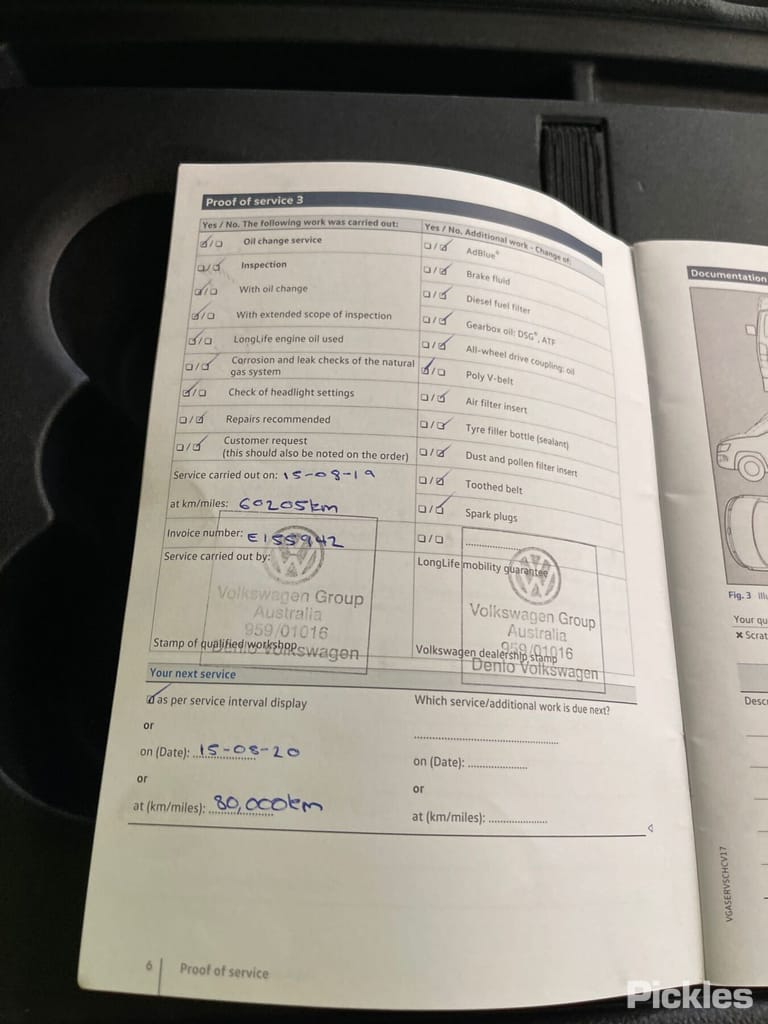 Proof of service 3
Yes / No. The following work was carried out:
Oil change service
Inspection
With oil change
With extended scope of inspection
LongLife engine oil used
Corrosion and leak checks of the natural
gas system
Check of headlight settings
Repairs recommended
Customer request
(this should also be noted on the order)
Service carried out on: 15-08-19
at km/miles: 60205km
Invoice number: E155942
Service carried out by:
Volkswagen Group
Australia
959/01016
Denlo Volkswagen
Stamp of qualified workshop
Yes / No. Additional work - Change of:
AdBlue®
Brake fluid
Diesel fuel filter
Gearbox oil: DSG®, ATF
All-wheel drive coupling: oil
Poly V-belt
Air filter insert
Tyre filler bottle (sealant)
Dust and pollen filter insert
Toothed belt
Spark plugs
LongLife mobility guarantee
Volkswagen Group
Australia
959/01016
Volkswagen dealership stamp
Denlo Volkswagen
Your next service
as per service interval display
or
on (Date): 15-08-20
or
at (km/miles): 80,000km
Which service/additional work is due next?
on (Date):
or
at (km/miles):
6 Proof of service
Documentation
Fig. 3
Your qu
× Scrat
Descr
VGASERVSCHCV17
Pickles